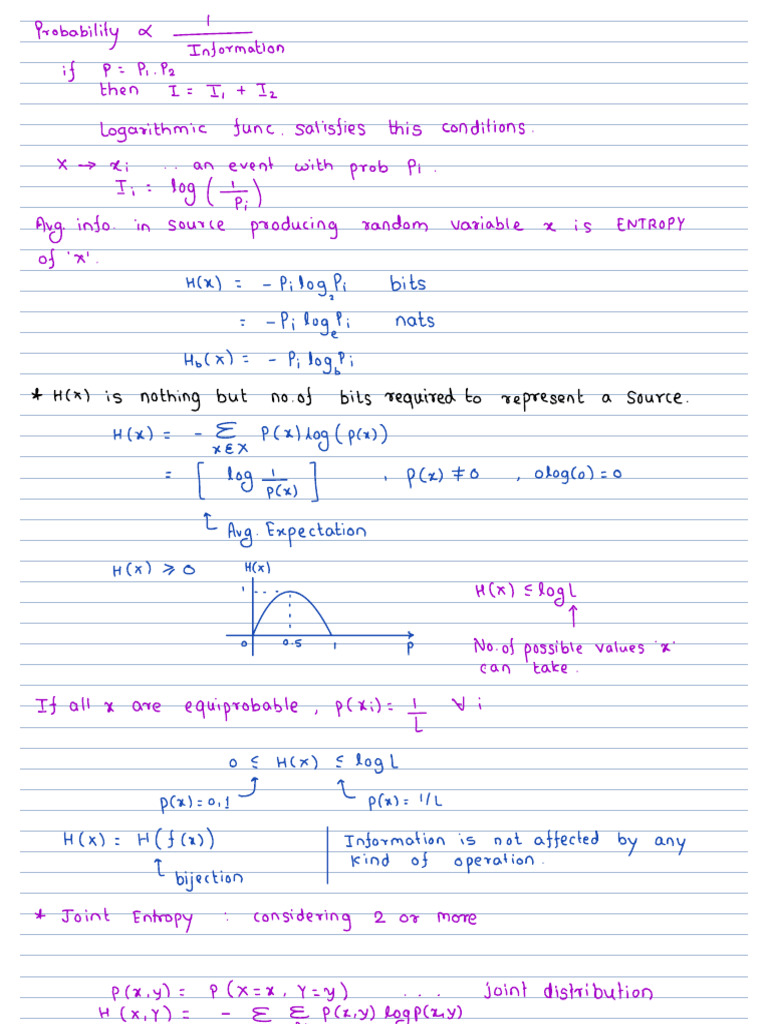 Probability ∝ 1 / Information
if P = P₁.P₂
then I = I₁ + I₂
Logarithmic func. satisfies this conditions.
X → xᵢ .. an event with prob Pᵢ.
Iᵢ = log(1/Pᵢ)
Avg. info. in source producing random variable x is ENTROPY
of 'x'.
H(x) = - Pᵢ log₂ Pᵢ bits
= - Pᵢ logₑ Pᵢ nats
H_b(x) = - Pᵢ log_b Pᵢ
* H(x) is nothing but no. of bits required to represent a source.
H(x) = - Σ_{x∈X} P(x) log(p(x))
= [ log 1/P(x) ] , P(x) ≠ 0 , 0log(0) = 0
Avg. Expectation
H(x) ≥ 0
H(x)
1
0 0.5 1 P
H(x) ≤ log L
No. of possible values 'x'
can take.
If all x are equiprobable, p(xᵢ) = 1/L ∀ i
0 ≤ H(x) ≤ log L
p(x) = 0,1 p(x) = 1/L
H(x) = H(f(x))
bijection
Information is not affected by any
kind of operation.
* Joint Entropy : considering 2 or more
P(x,y) = P(X=x, Y=y) ... joint distribution
H(X,Y) = - Σ Σ P(x,y) log p(x,y)